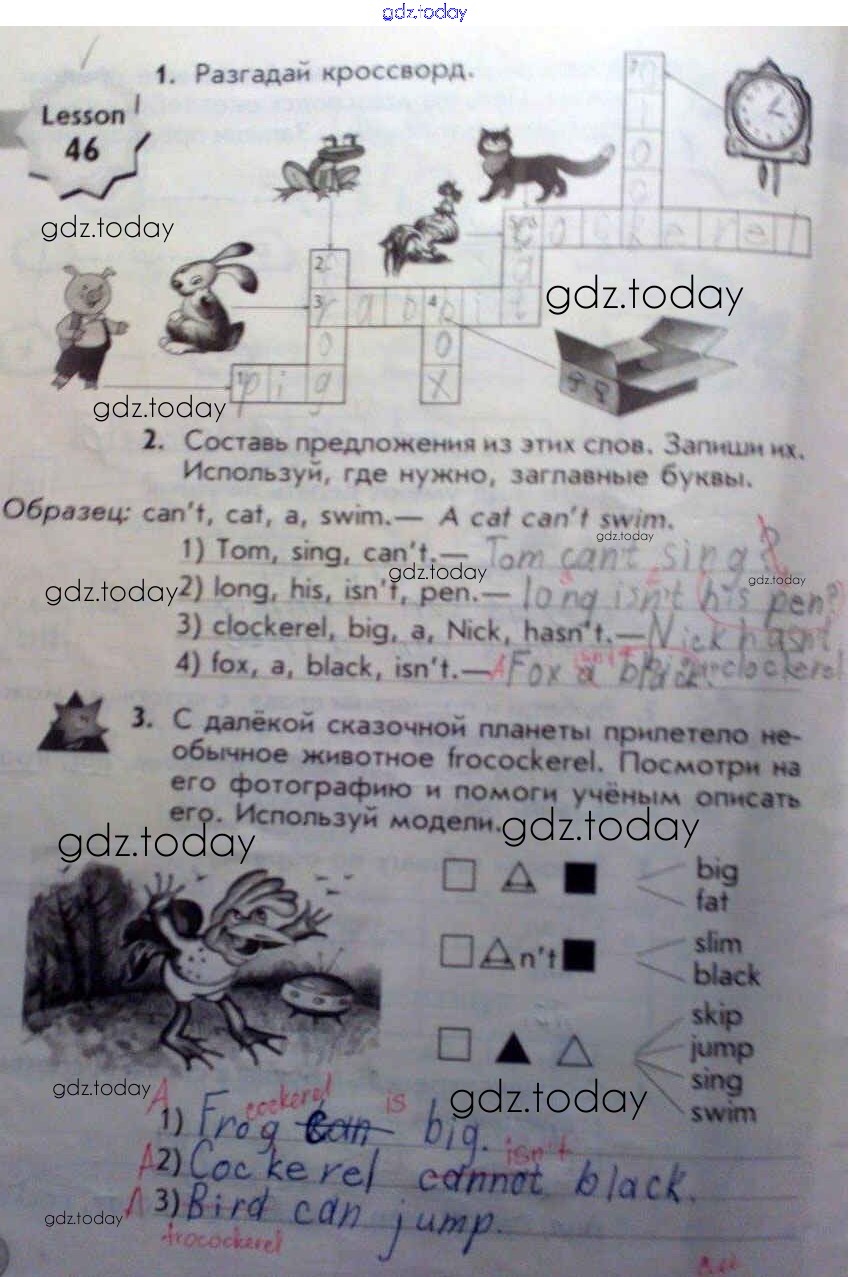 gdz.today
1. Разгадай кроссворд.
Lesson
46
gdz.today
cockerel
gdz.today
rabbit
o o
pig x
gdz.today
2. Составь предложения из этих слов. Запиши их.
Используй, где нужно, заглавные буквы.
Образец: can't, cat, a, swim.— A cat can't swim.
gdz.today
1) Tom, sing, can't.— Tom can't sing?
gdz.today
gdz.today
gdz.today
2) long, his, isn't, pen.— long isn't his pen?
3) clockerel, big, a, Nick, hasn't.— Nick hasn't
4) fox, a, black, isn't.— A Fox a black. clockerel
3. С далёкой сказочной планеты прилетело не-
обычное животное frocockerel. Посмотри на
его фотографию и помоги учёным описать
его. Используй модели.
gdz.today
gdz.today
big
fat
n't
slim
black
skip
jump
sing
swim
gdz.today
gdz.today
A cockerel is
1) Frog can big.
isn't
A 2) Cockerel cannot black.
gdz.today
A 3) Bird can jump.
frocockerel